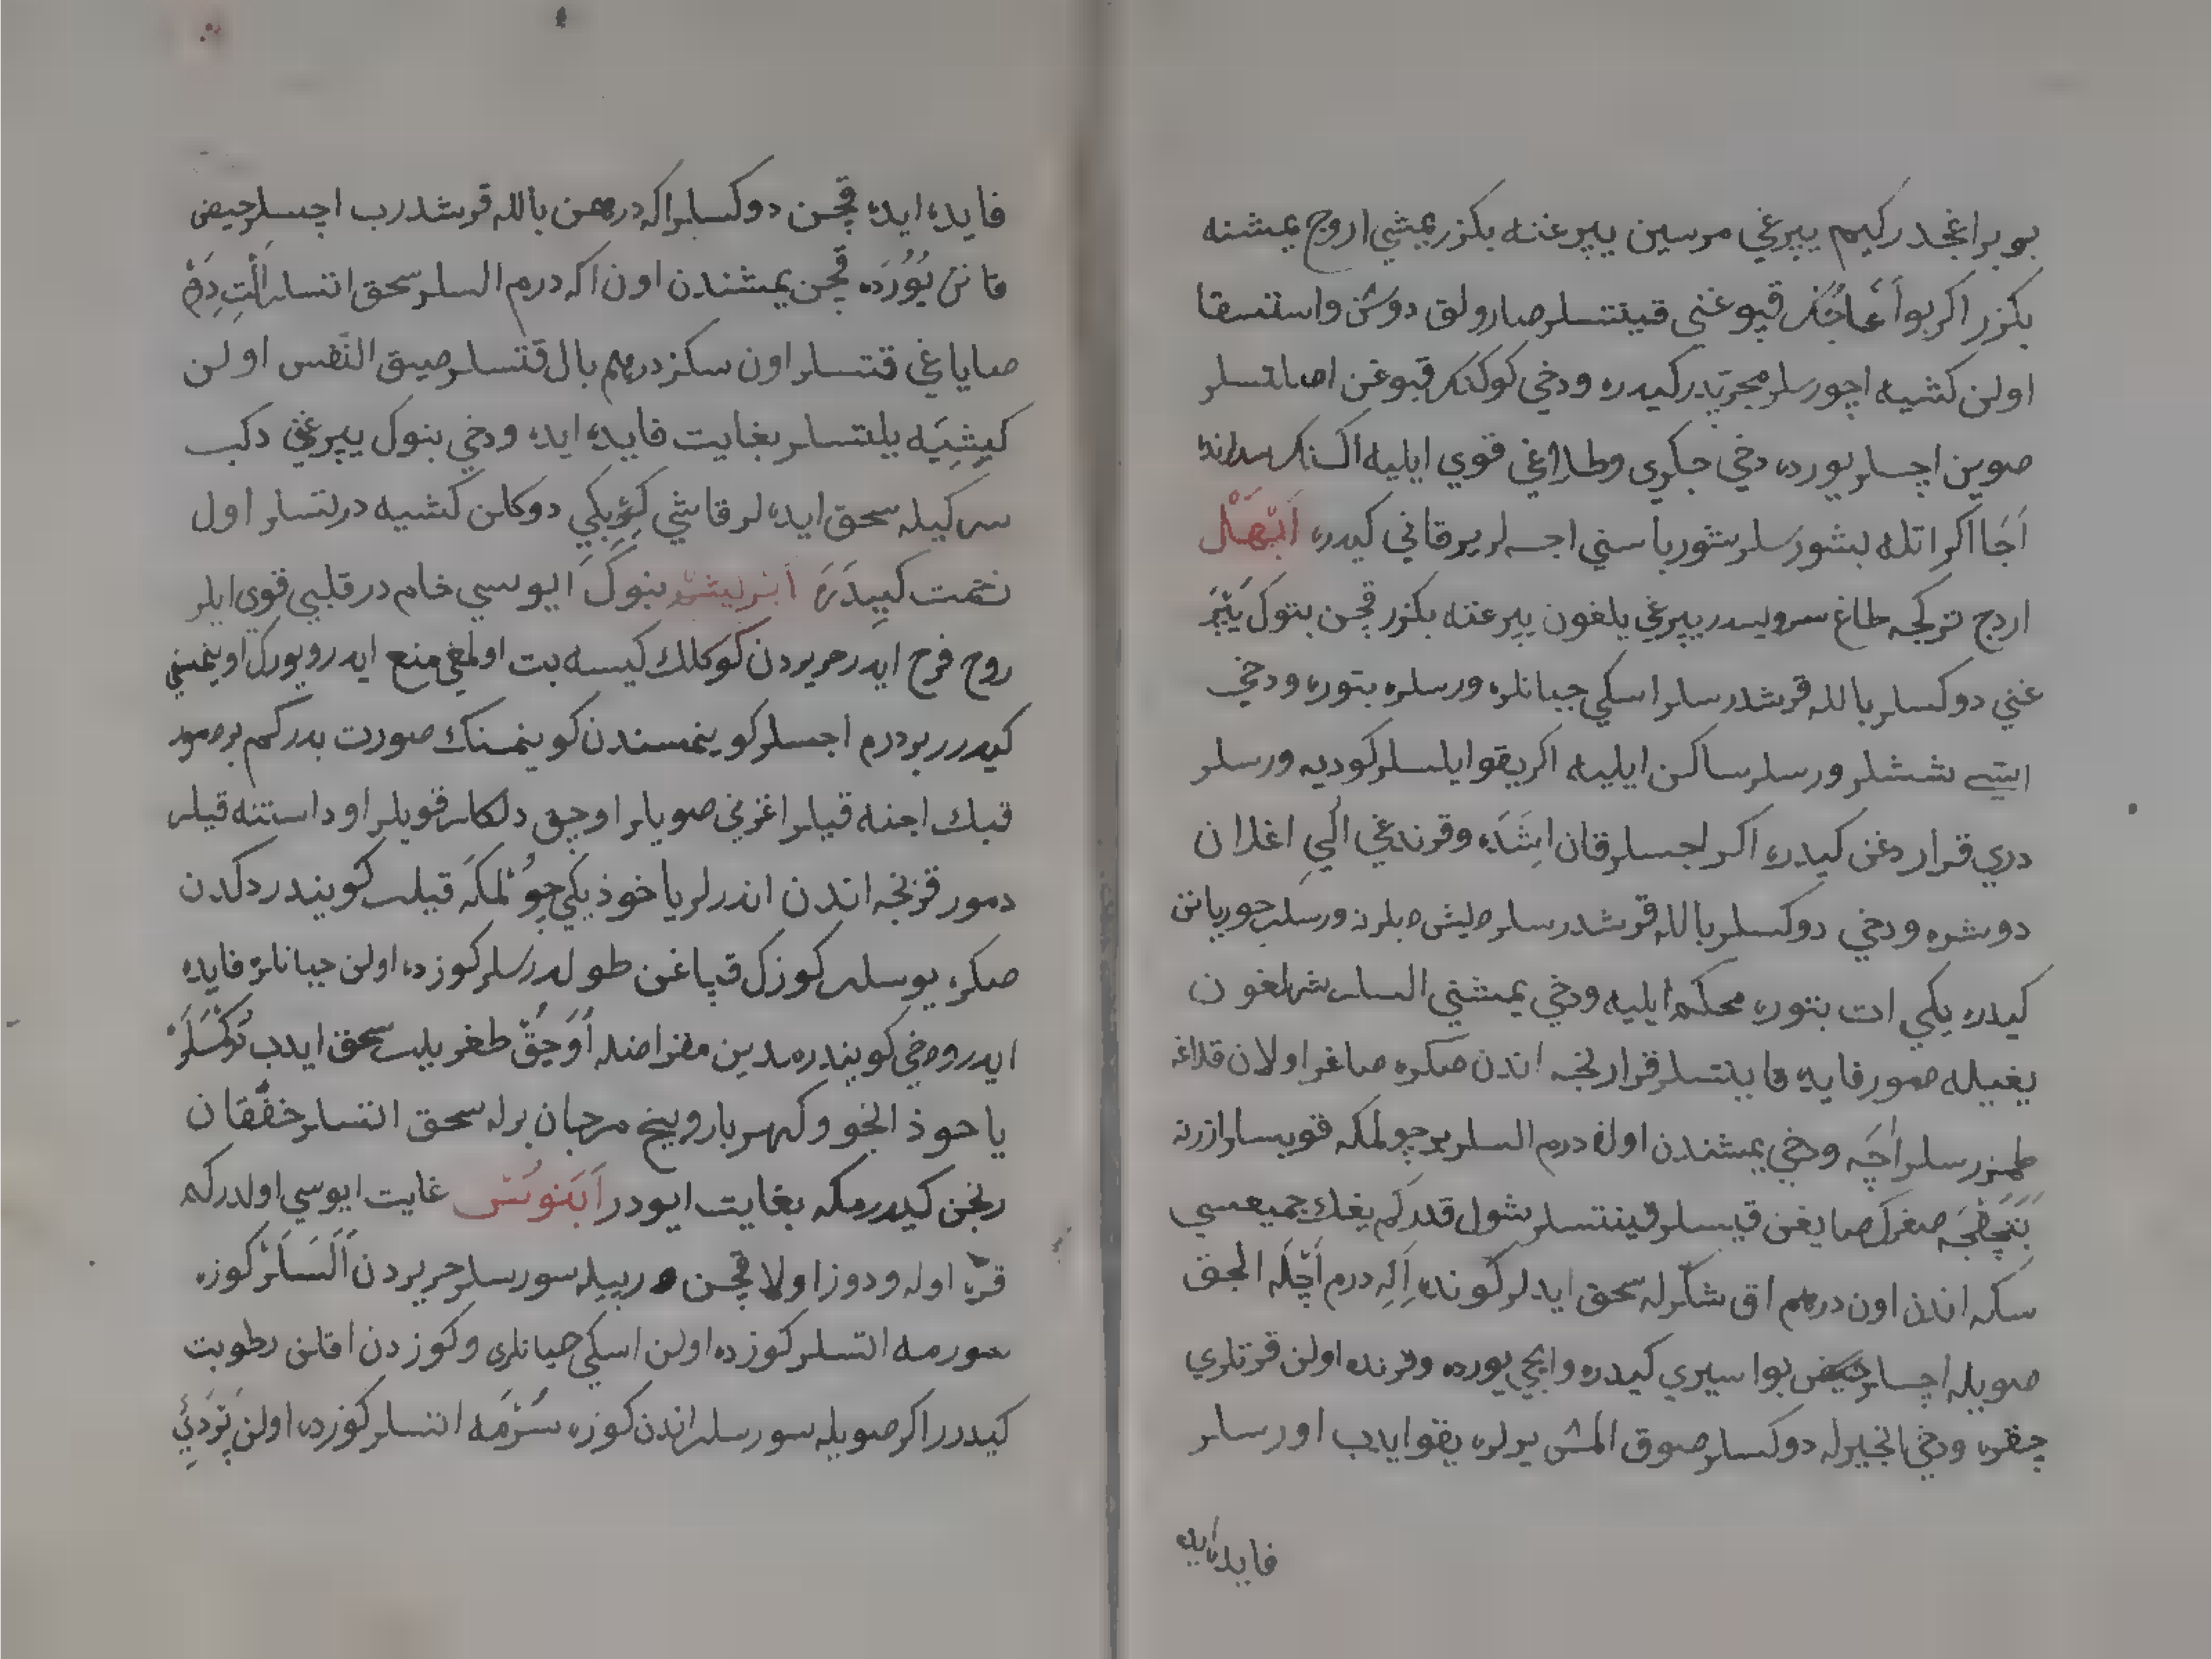 بو بر اغجدر كيم يپرغي مرسين يپرغنه بكزر يمشي اروج يمشنه
بكزر اكر بو اَغاجُنك قپوغني قينتسلر صارولق دوشن واستسقا
اولن كشيه اچورسلر مجرّبدر كيدره ودخي كوكنك قبوغن اصلاتسلر
صوين اچسلر يورده دخي جكري وطلاغي قوي ايليه اكـنك
اَجَا اكر اتله بشورَسلر شورباسني اجـه لر يرقاني كيدره اَبْهَلْ
اردج تركجه طاغ سرويسدر يپرغي يلغون يپرغنه بكزر قچن بنوك يَپْرَ
غني دوكسلر بالله قرشدرسلر اسكي جبانلره ورسلره بتوره ودخي
ايتيـى ششلر ورسلر ساكن ايليه اكر يقو ايلسلر كوديه ورسلر
دري قرار دغن كيدره اكر اجسلر قان اِشَدَه وقرندغي اكي اغلان
دوشره ودخي دوكسلر بالله قرشدرسلر ورسلر جوريانن
كيدره يكي ات بتوره محكم ايليه ودخي يمشني السلر شرلغون
يغيله صمور قابده قاينتسلر قرارنجه اندن صكره صاغر اولان قلاغه
طمزرسلر اَچَه ودخي يمشندن اون درم السلر بر چولمكه قويسلر ازرنه
صغرك صايغن قيسلر قينتسلر شول قدر كم يغك جميعسي
سكه اندن اون درهم اق شكرله سحق ايدلر كونده اَكِ درم اَچَله الجق
صويله اچسلر حيض بواسيري كيدره وايچي يورده وقرنده اولن قرتلري
چقره ودخي انجيرله دوكسلر صوق المش يرلره يقو ايدب اورسلر
فايده ايده
فايده ايده قچن دوكسلر اكه درهمن بالله قرشدرب اچسلر حيض
قانن يُوُرُدَه قچن يمشندن اون اكه درم السلر سحق اتسلر اَلْتِ دِرَمْ
صاياغي قتسلر اون سكز درهم بال قتسلر ضيق النَّفس اولن
كِيشِيَه يلتسلر بغايت فايده ايده ودخي بنوك يپرغني دكب
سركيله سحق ايده لر قاشي كِرْپِكي دوكلن كشيه درتسلر اول
زحمت كيدَرَه اَبْرِيشَمْ بنوكَ ايوسي خام در قلبي قوي ايلر
روح فرح ايدر حريردن كوكلك كيسه بت اولمغي منع ايدر ويورك اوينمسني
كيدرر بر درم اجسلر كوينمسندن كوينمسنك صورت بدر كم بر صمور
قبك اجنه قيلر اغزني صويلر اوجق دلكلر قويلر اود استنه قيلر
دمور قزنجه اندن اندرلر يا خوذ يكي چُوُلمكَه قيلر كويندردكدن
صكره يوسلر كوزك قپاغن طولدرسلر كوزده اولن جبانلره فايده
ايدر ودخي كويندرمدين مقراضله اُوَجُقْ طغريلر سحق ايدب
يا خوذ انجو وكهربار وبيخ مرجان برله سحق اتسلر خفقان
رنجن كيدرمكه بغايت ايودر اَبَنُوسْ غايت ايوسي اولدركه
قره اوله ودوز اولا قچن صوييله سورسلر حريردن اَلَسَلَرْ كوزه
سورمه اتسلر كوزده اولن اسكي جبانلري وكوزدن اقان رطوبت
كيدرر اكر صويله سورسلر اندن كوزه سُرْمَه اتسلر كوزده اولن